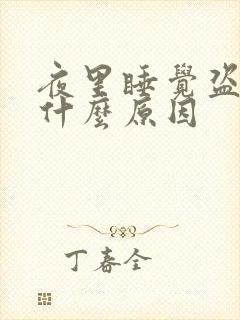 夜里睡覺盗
什麼原因
丁春全